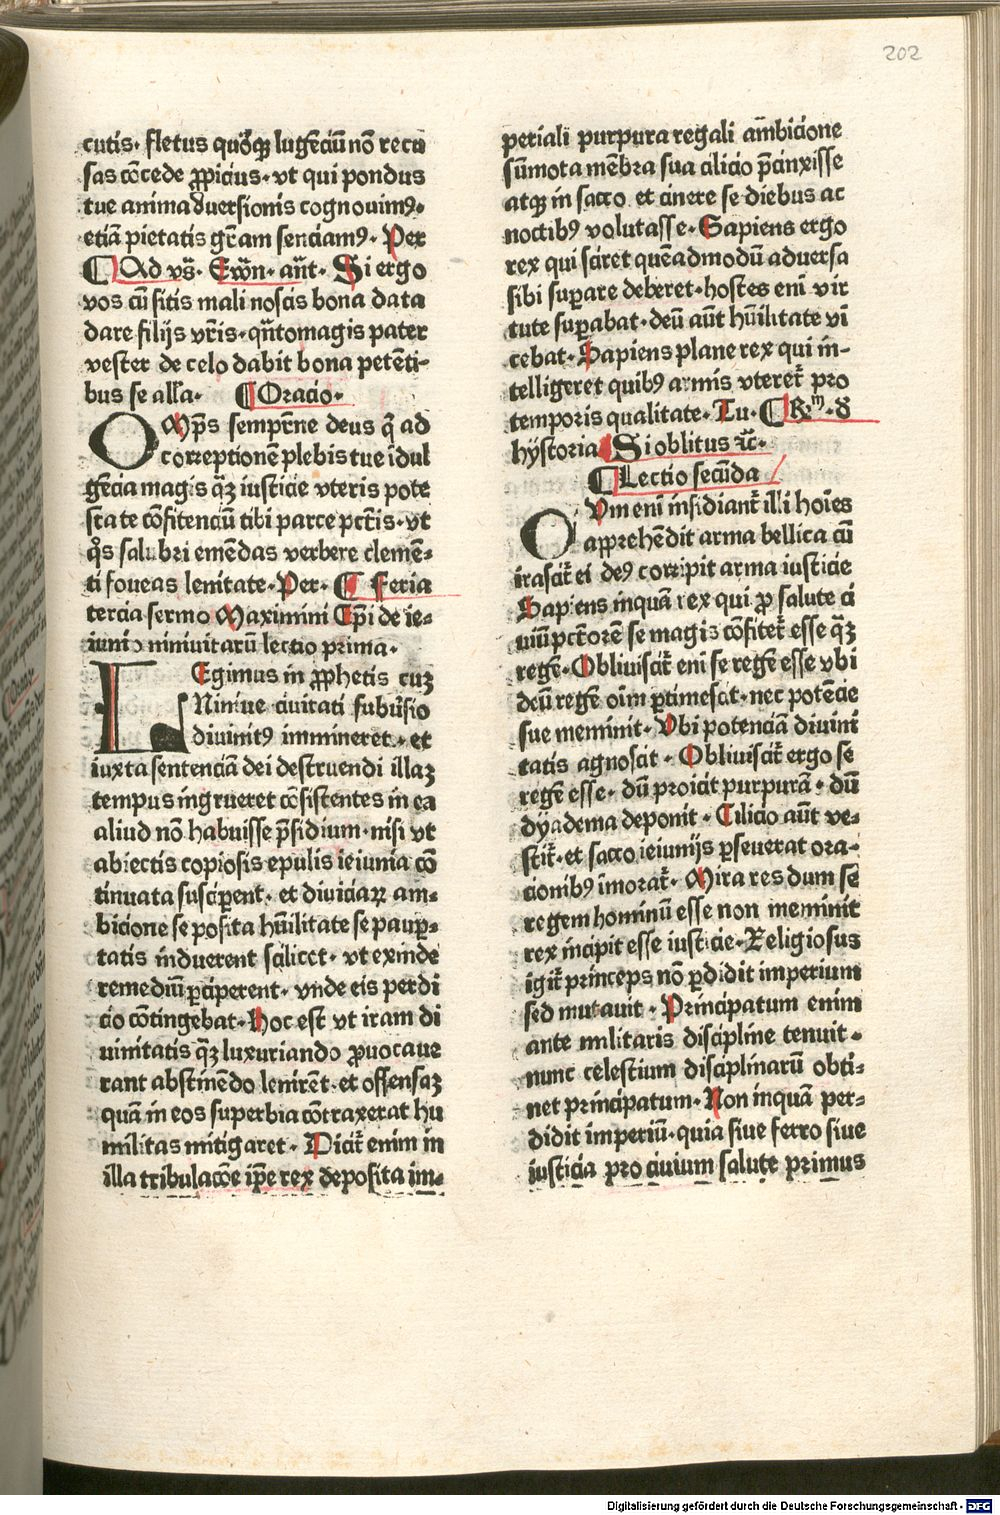 202
cutis. fletus quoꝫqꝫ lugēciū nō recu
sas cōcede ꝓpicius. vt qui pondus
tue animadversionis cognouimꝰ.
etiā pietatis gr̄am senciamꝰ. Per
¶ Ad vs̄. Ewn̄. an̄t. Si ergo
vos cū sitis mali noscis bona data
dare filijs vr̄is. qn̄tomagis pater
vester de celo dabit bona petēti-
bus se alla. ¶ Oracio.
OMp̄s semprne deus q̄ ad
correptionē plebis tue īdul
gēcia magis qꝫ iusticie vteris pote
sta te cōfitenciū tibi parce pctīs. vt
qͦs salubri emēdas verbere clemē-
ti foueas lenitate. Per. ¶ Feria
tercia sermo Maximini Ep̄i de ie-
iunio niniuitarū lectio prima.
LEgimus in ꝓphetis cuꝫ
Niniue ciuitati subūsio
diuinitꝰ immineret. et
iuxta sentenciā dei destruendi illaꝫ
tempus ingrueret cōsistentes in ea
aliud nō habuisse p̄sidium. nisi vt
abiectis copiosis epulis ieiunia cō
tinuata susciperent. et diuiciaꝝ am-
bicione se posita hūilitate se pauꝑ-
tatis induerent scilicet. vt exinde
remediū ꝑciperent. vnde eis perdi
cio cōtingebat. Hoc est vt iram di
uinitatis qꝫ luxuriando ꝓuocaue
rant abstinēdo lenirēt. et offensaꝫ
quam in eos superbia cōtraxerat hu
militas mitigaret. Dicit̄ enim in
illa tribulacōe ip̄e rex deposita im-
periali purpura regali am̄bicione
sūmota mēbra sua cilicio p̄cinxisse
atqꝫ in sacco et cinere se diebus ac
noctibꝰ volutasse. Sapiens ergo
rex qui sciret quēadmodū aduersa
sibi suꝑare deberet. hostes eni vir
tute suꝑabat. deū aūt hūilitate vī
cebat. Sapiens plane rex qui in-
telligeret quibꝰ armis vteret̄ pro
temporis qualitate. Tu. ¶ Rm. d
hystoria Si oblitus ⁊c̄.
¶ Lectio secūda
QVm eni insidiant̄ illi hoīes
apprehēdit arma bellica cū
irascit̄ ei deꝰ corripit arma iusticie
Sapiens inquā rex qui ꝓ salute ci
uiū pctōrē se magis cōfiteт̄ esse qꝫ
regē. Obliuiscit̄ eni se regē esse vbi
deū regē oīm ꝑtimescat. nec potēcie
sue meminit. Vbi potenciā diuini
tatis agnoscit. Obliuiscit̄ ergo se
regē esse. dū proicit purpurā. dū
dyadema deponit. Cilicio aūt ve-
stit̄. et sacco ieiunijs ꝑseuerat ora-
cionibꝰ īmorat̄. Mira res dum se
regem hominū esse non meminit
rex incipit esse iusticie. Religiosus
igit̄ princeps nō ꝑdidit imperium
sed mutauit. Principatum enim
ante militaris discipline tenuit.
nunc celestium disciplinarū obti-
net principatum. Non inquā per-
didit imperiū. quia siue ferro siue
iusticia pro ciuium salute primus
Digitalisierung gefördert durch die Deutsche Forschungsgemeinschaft - DFG